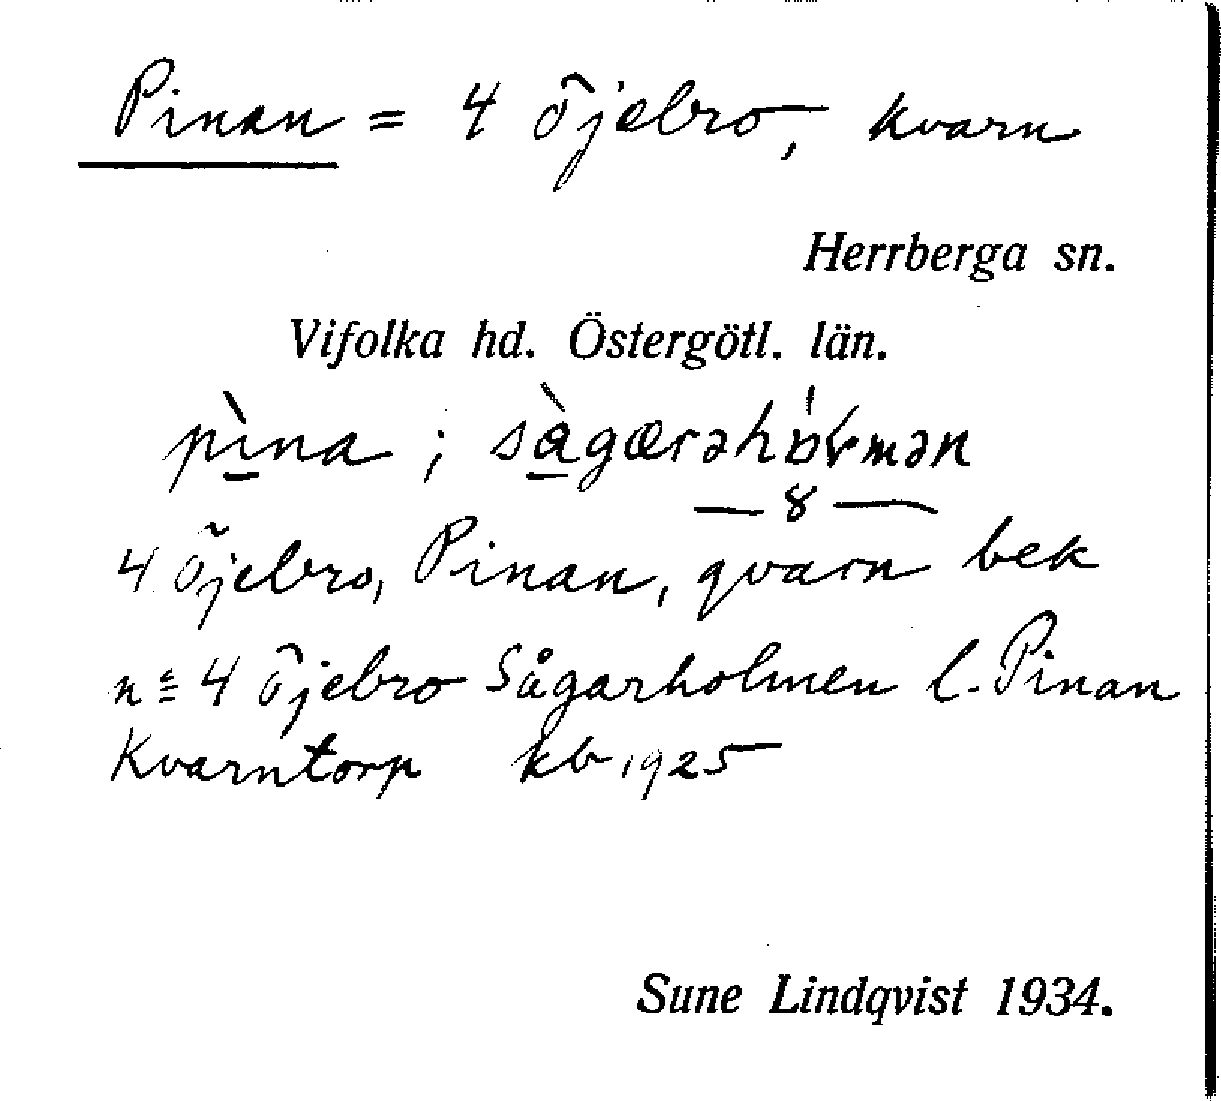 Pinan = 4 Öjebro, kvarn
Herrberga sn.
Vifolka hd. Östergötl. län.
pìna ; sàgærəhɒ́ɽmən
— 8 —
4 Öjebro, Pinan, qvarn bek
n = 4 Öjebro Sågarholmen l. Pinan
Kvarntorp kb 1925
Sune Lindqvist 1934.